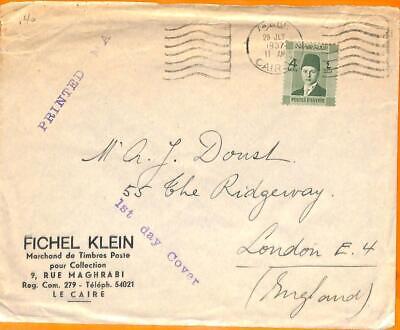 140
PRINTED
29 JLY
1937
11 AM
CAIRE
4
POSTES D'EGYPTE
Mr A. J. Doust.
55 The Ridgeway.
London E. 4
(England)
1st day Cover
FICHEL KLEIN
Marchand de Timbres Poste
pour Collection
9, RUE MAGHRABI
Reg. Com. 279 - Téléph. 54021
LE CAIRE